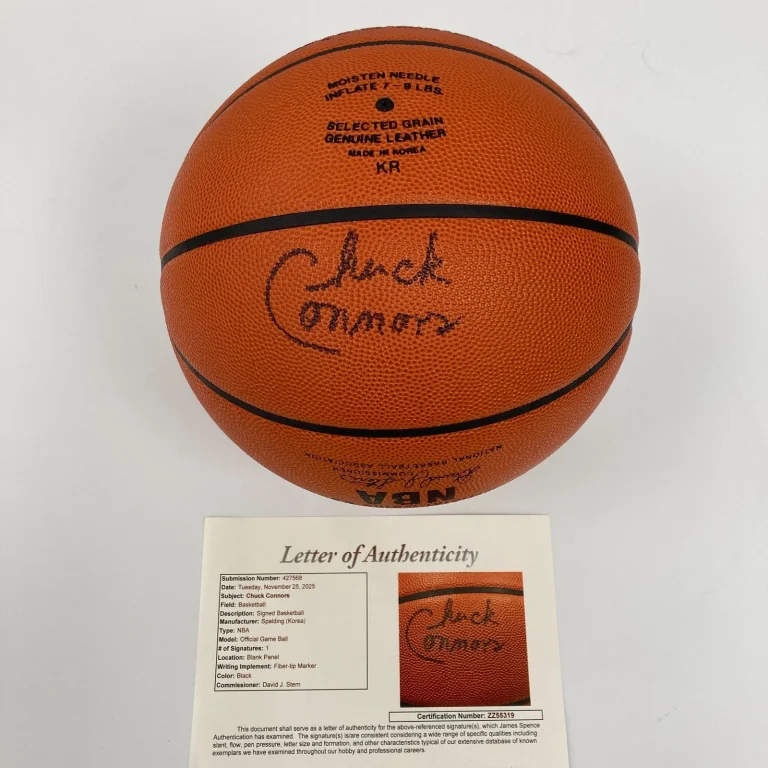 MOISTEN NEEDLE
INFLATE 7 - 9 LBS.
SELECTED GRAIN
GENUINE LEATHER
MADE IN KOREA
KR
Chuck
Connors
NATIONAL BASKETBALL ASSOCIATION
COMMISSIONER
David J. Stern
NBA
Letter of Authenticity
Submission Number: 427568
Date: Tuesday, November 25, 2025
Subject: Chuck Connors
Field: Basketball
Description: Signed Basketball
Manufacturer: Spalding (Korea)
Type: NBA
Model: Official Game Ball
# of Signatures: 1
Location: Blank Panel
Writing Implement: Fiber-tip Marker
Color: Black
Commissioner: David J. Stern
Chuck
Connors
Certification Number: ZZ55319
This document shall serve as a letter of authenticity for the above-referenced signature(s), which James Spence
Authentication has examined. The signature(s) is/are consistent considering a wide range of specific qualities including
slant, flow, pen pressure, letter size and formation, and other characteristics typical of our extensive database of known
exemplars we have examined throughout our hobby and professional careers.